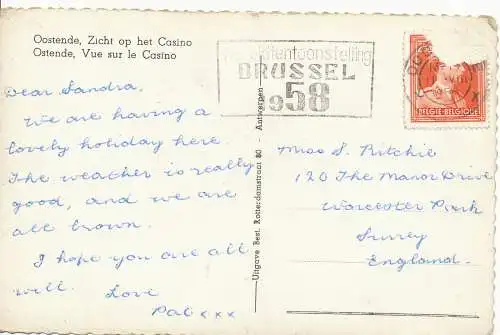 Oostende, Zicht op het Casino
Ostende, Vue sur le Casino
BRUSSEL
958
BELGIE-BELGIQUE
Uitgave Best. Rotterdamstraat 80 - Antwerpen
Dear Sandra,
We are having a
lovely holiday here.
The weather is really
good, and we are
all brown.
I hope you are all
well. Love
Pat x x x
Miss S. Ritchie
120 The Manor Drive
Worcester Park
Surrey
England.